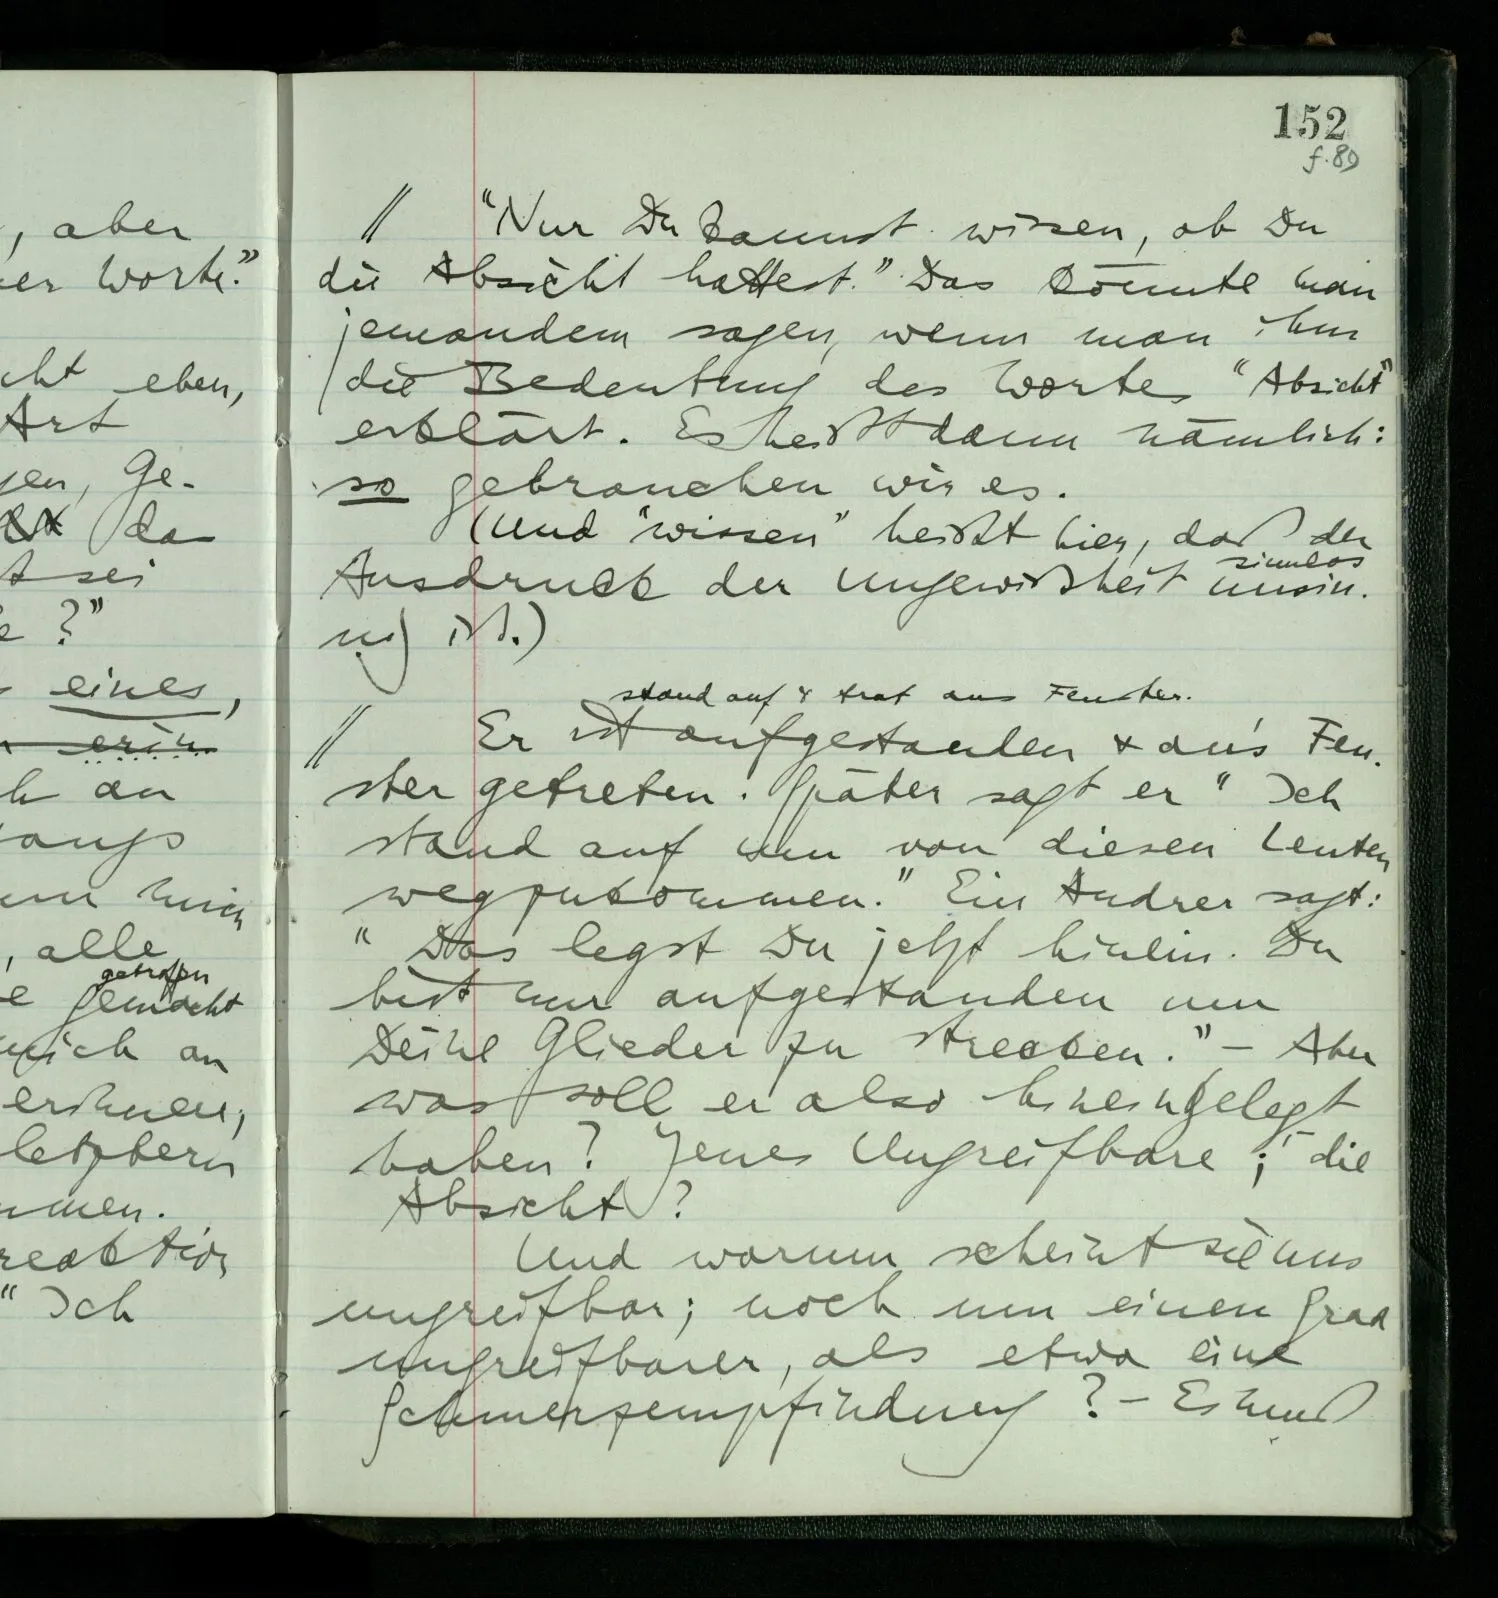 , aber
er Worte."
cht eben,
Art
gen, Ge-
da
t sei
e ?"
eines,
erin
h an
tangs
mich
, alle
getroffen
e gemacht
mich an
erinnern;
letztern
mmen.
reaktion
" Ich
152
f. 80
// "Nur Du kannst wissen, ob Du
die Absicht hattest." Das könnte man
jemandem sagen, wenn man ihm
die Bedeutung des Wortes "Absicht"
erklärt. Es heißt dann nämlich:
so gebrauchen wir es.
(Und "wissen" heißt hier, daß der
sinnlos
Ausdruck der Ungewißheit unsin-
nig ist.)
stand auf & trat ans Fenster.
// Er ist aufgestanden & an's Fen-
ster getreten. Später sagt er "Ich
stand auf um von diesen Leuten
wegzukommen." Ein Andrer sagt:
" Das legst Du jetzt hinein. Du
bist nur aufgestanden um
Deine Glieder zu strecken." – Aber
was soll er also hineingelegt
haben? Jenes Ungreifbare; die
Absicht?
Und warum scheint sie uns
ungreifbar; noch um einen Grad
ungreifbarer, als etwa eine
Schmerzempfindung? – Es muß